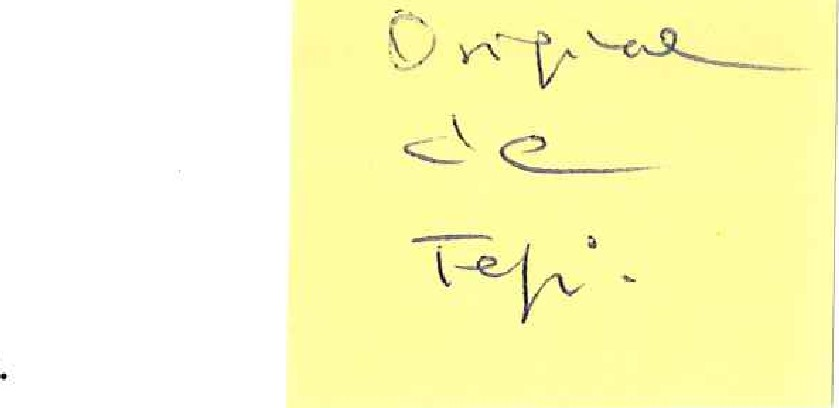 Original
de
Tepi.